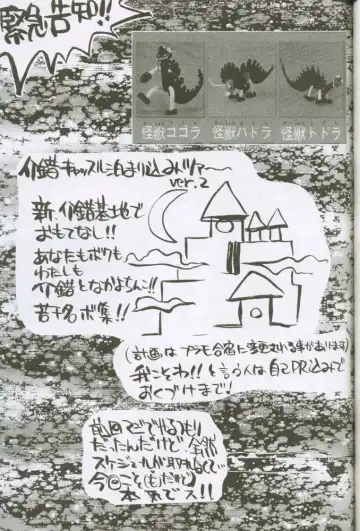 緊急告知!!
怪獣ココラ
怪獣ハドラ
怪獣トドラ
介錯キャッスル泊まり込みツアー
ver.2
新、介錯基地で
おもてなし!!
あなたもボクも
わたしも
介錯となかよちんこ!!
若干名ボ集!!
(計画は プラモ合宿に変更される事があります)
我こそわ!! と言う人は自己PR込みで
おくづけまで!
前回でやるつもり
だったんだけど、全然
スケジュールが取れなくて…
今回こそ(も)だけど
本気でス!!